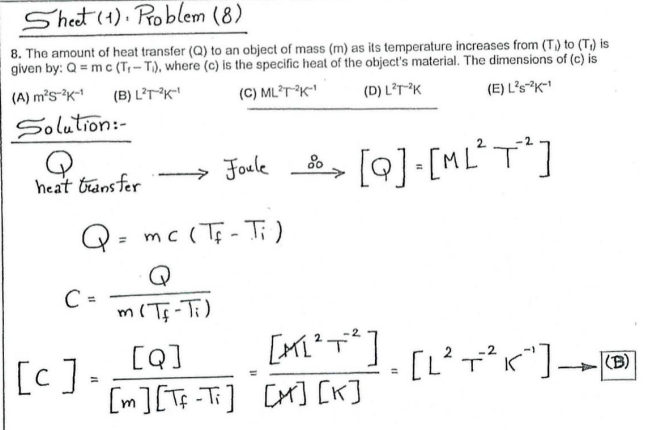 Sheet (1). Problem (8)
8. The amount of heat transfer (Q) to an object of mass (m) as its temperature increases from (Tᵢ) to (T_f) is
given by: Q = m c (T_f – Tᵢ), where (c) is the specific heat of the object's material. The dimensions of (c) is
(A) m²S⁻²K⁻¹ (B) L²T⁻²K⁻¹ (C) ML²T⁻²K⁻¹ (D) L²T⁻²K (E) L²s⁻²K⁻¹
Solution:-
Q heat transfer → Joule ∴→ [Q] = [ML² T⁻²]
Q = m c (T_f - Tᵢ)
C = Q / m (T_f - Tᵢ)
[C] = [Q] / [m][T_f - Tᵢ] = [ML² T⁻²] / [M] [K] = [L² T⁻² K⁻¹] → (B)